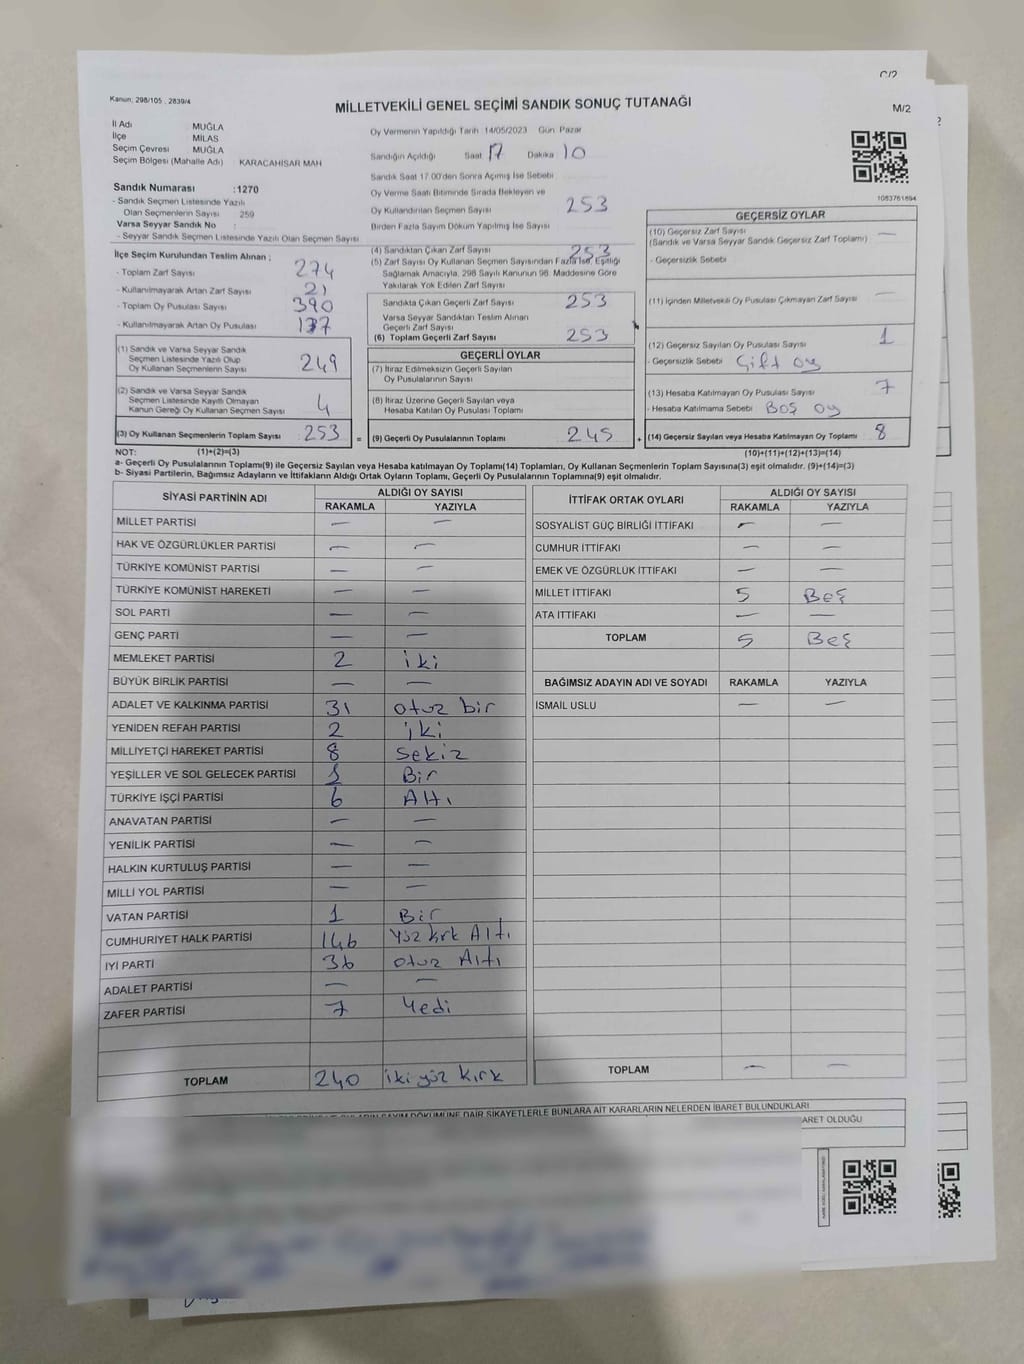 C/2
Kanun: 298/105 , 2839/4
MİLLETVEKİLİ GENEL SEÇİMİ SANDIK SONUÇ TUTANAĞI
M/2
İl Adı MUĞLA
İlçe MİLAS
Seçim Çevresi MUĞLA
Seçim Bölgesi (Mahalle Adı) KARACAHİSAR MAH
Sandık Numarası :1270
- Sandık Seçmen Listesinde Yazılı
Olan Seçmenlerin Sayısı 259
Varsa Seyyar Sandık No :
- Seyyar Sandık Seçmen Listesinde Yazılı Olan Seçmen Sayısı
İlçe Seçim Kurulundan Teslim Alınan ;
- Toplam Zarf Sayısı 274
- Kullanılmayarak Artan Zarf Sayısı 21
- Toplam Oy Pusulası Sayısı 390
- Kullanılmayarak Artan Oy Pusulası 137
(1) Sandık ve Varsa Seyyar Sandık
Seçmen Listesinde Yazılı Olup
Oy Kullanan Seçmenlerin Sayısı 249
(2) Sandık ve Varsa Seyyar Sandık
Seçmen Listesinde Kayıtlı Olmayan
Kanun Gereği Oy Kullanan Seçmen Sayısı 4
(3) Oy Kullanan Seçmenlerin Toplam Sayısı 253
Oy Vermenin Yapıldığı Tarih 14/05/2023 Gün Pazar
Sandığın Açıldığı Saat 17 Dakika 10
Sandık Saat 17:00'den Sonra Açılmış İse Sebebi
Oy Verme Saati Bitiminde Sırada Bekleyen ve
Oy Kullandırılan Seçmen Sayısı 253
Birden Fazla Sayım Döküm Yapılmış İse Sayısı
(4) Sandıktan Çıkan Zarf Sayısı 253
(5) Zarf Sayısı Oy Kullanan Seçmen Sayısından Fazla İse, Eşitliği
Sağlamak Amacıyla, 298 Sayılı Kanunun 98. Maddesine Göre
Yakılarak Yok Edilen Zarf Sayısı
Sandıkta Çıkan Geçerli Zarf Sayısı 253
Varsa Seyyar Sandıktan Teslim Alınan
Geçerli Zarf Sayısı
(6) Toplam Geçerli Zarf Sayısı 253
GEÇERLİ OYLAR
(7) İtiraz Edilmeksizin Geçerli Sayılan
Oy Pusulalarının Sayısı
(8) İtiraz Üzerine Geçerli Sayılan veya
Hesaba Katılan Oy Pusulası Toplamı
= (9) Geçerli Oy Pusulalarının Toplamı 245 +
1083761694
GEÇERSİZ OYLAR
(10) Geçersiz Zarf Sayısı —
(Sandık ve Varsa Seyyar Sandık Geçersiz Zarf Toplamı)
- Geçersizlik Sebebi
(11) İçinden Milletvekili Oy Pusulası Çıkmayan Zarf Sayısı —
(12) Geçersiz Sayılan Oy Pusulası Sayısı 1
- Geçersizlik Sebebi Çift oy
(13) Hesaba Katılmayan Oy Pusulası Sayısı 7
- Hesaba Katılmama Sebebi Boş oy
(14) Geçersiz Sayılan veya Hesaba Katılmayan Oy Toplamı 8
NOT: (1)+(2)=(3) (10)+(11)+(12)+(13)=(14)
a- Geçerli Oy Pusulalarının Toplamı(9) ile Geçersiz Sayılan veya Hesaba katılmayan Oy Toplamı(14) Toplamları, Oy Kullanan Seçmenlerin Toplam Sayısına(3) eşit olmalıdır. (9)+(14)=(3)
b- Siyasi Partilerin, Bağımsız Adayların ve İttifakların Aldığı Ortak Oyların Toplamı, Geçerli Oy Pusulalarının Toplamına(9) eşit olmalıdır.
SİYASİ PARTİNİN ADI ALDIĞI OY SAYISI
RAKAMLA YAZIYLA
MİLLET PARTİSİ — —
HAK VE ÖZGÜRLÜKLER PARTİSİ — —
TÜRKİYE KOMÜNİST PARTİSİ — —
TÜRKİYE KOMÜNİST HAREKETİ — —
SOL PARTİ — —
GENÇ PARTİ — —
MEMLEKET PARTİSİ 2 iki
BÜYÜK BİRLİK PARTİSİ — —
ADALET VE KALKINMA PARTİSİ 31 otuz bir
YENİDEN REFAH PARTİSİ 2 iki
MİLLİYETÇİ HAREKET PARTİSİ 8 sekiz
YEŞİLLER VE SOL GELECEK PARTİSİ 1 Bir
TÜRKİYE İŞÇİ PARTİSİ 6 Altı
ANAVATAN PARTİSİ — —
YENİLİK PARTİSİ — —
HALKIN KURTULUŞ PARTİSİ — —
MİLLİ YOL PARTİSİ — —
VATAN PARTİSİ 1 Bir
CUMHURİYET HALK PARTİSİ 146 Yüz kırk Altı
İYİ PARTİ 36 otuz Altı
ADALET PARTİSİ — —
ZAFER PARTİSİ 7 Yedi
TOPLAM 240 iki yüz kırk
İTTİFAK ORTAK OYLARI ALDIĞI OY SAYISI
RAKAMLA YAZIYLA
SOSYALİST GÜÇ BİRLİĞİ İTTİFAKI — —
CUMHUR İTTİFAKI — —
EMEK VE ÖZGÜRLÜK İTTİFAKI — —
MİLLET İTTİFAKI 5 Beş
ATA İTTİFAKI — —
TOPLAM 5 Beş
BAĞIMSIZ ADAYIN ADI VE SOYADI RAKAMLA YAZIYLA
İSMAİL USLU — —
TOPLAM — —
SAYIM DÖKÜMÜNE DAİR ŞİKAYETLERLE BUNLARA AİT KARARLARIN NELERDEN İBARET BULUNDUKLARI
OLDUĞU